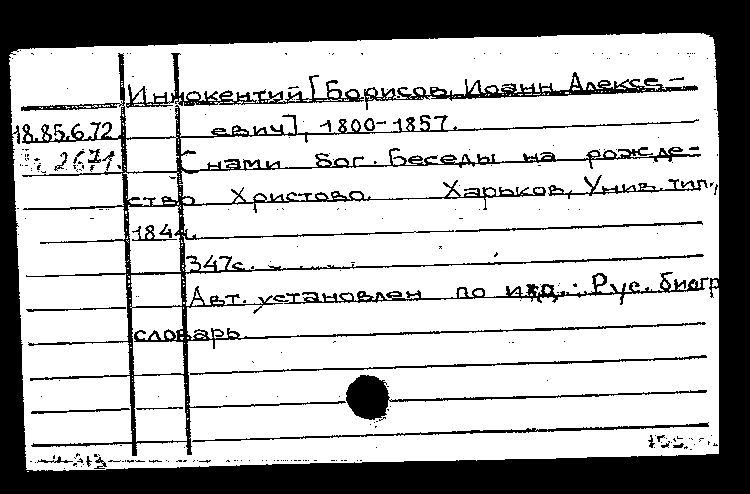 Иннокентий [Борисов, Иоанн Алексе-
18.85.6.72. евич], 1800-1857.
2671. С нами бог. Беседы на рожде-
ство Христово. Харьков, Унив. тип.,
1844.
347с.
Авт. установлен по изд.: Рус. биогр
словарь